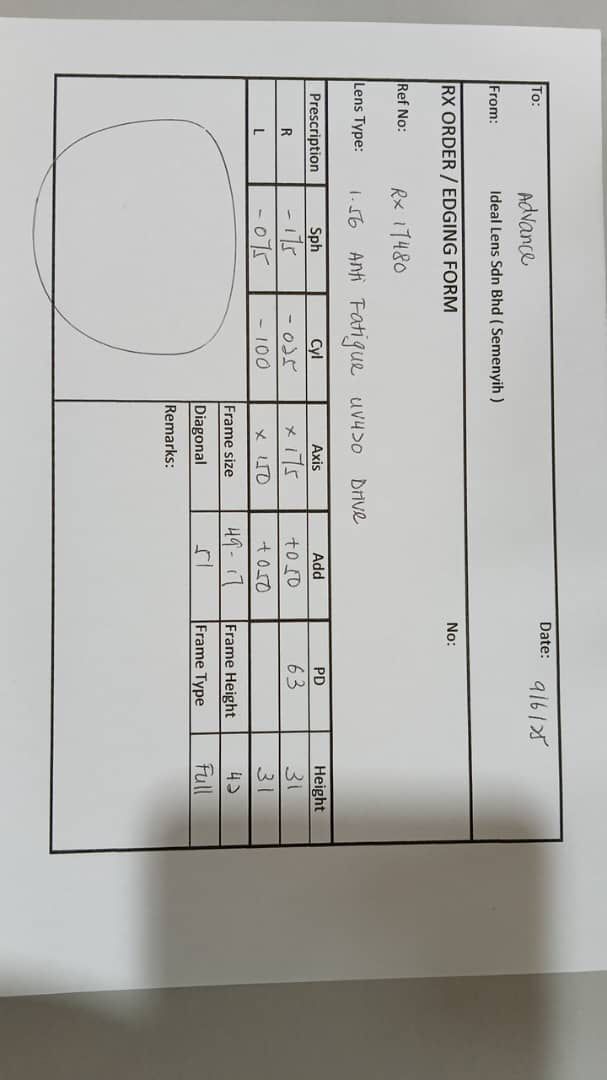 To: Advance Date: 9/6/25
From: Ideal Lens Sdn Bhd ( Semenyih )
RX ORDER / EDGING FORM No:
Ref No: Rx 17480
Lens Type: 1.56 Anti Fatigue UV420 Drive
Prescription Sph Cyl Axis Add PD Height
R -175 -025 x 175 +050 63 31
L -075 -100 x 150 +050 31
Frame size 49-17 Frame Height 42
Diagonal 51 Frame Type Full
Remarks: